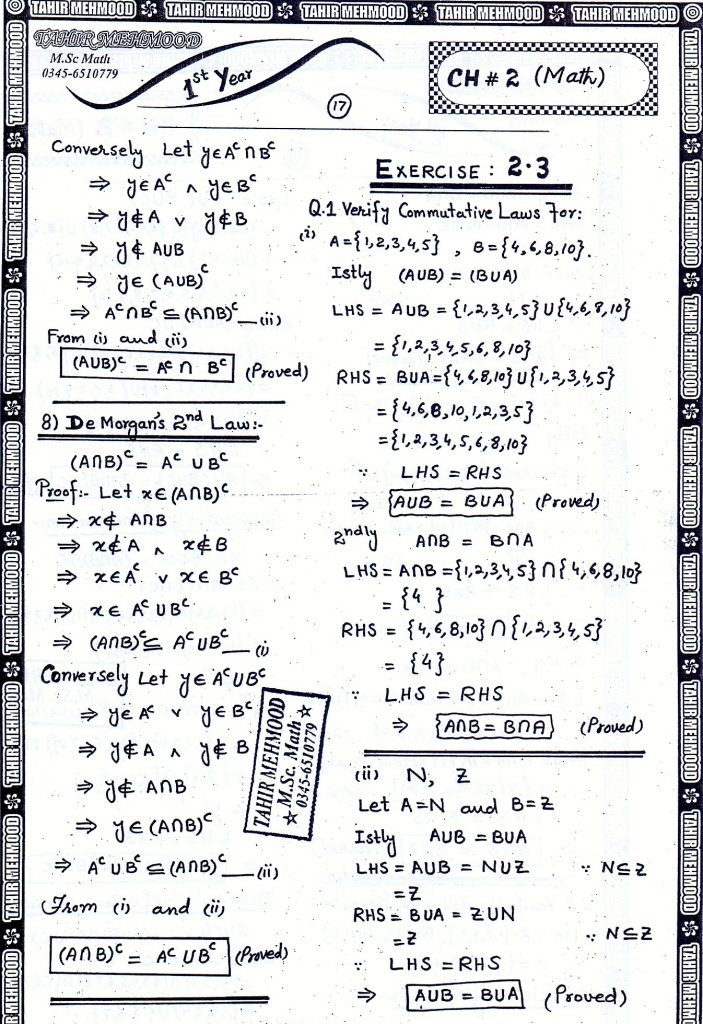 TAHIR MEHMOOD TAHIR MEHMOOD TAHIR MEHMOOD TAHIR MEHMOOD TAHIR MEHMOOD
TAHIR MEHMOOD
M.Sc Math
0345-6510779
1st Year
CH # 2 (Math)
17
Conversely Let y∈Aᶜ∩Bᶜ
⇒ y∈Aᶜ ∧ y∈Bᶜ
⇒ y∉A ∨ y∉B
⇒ y∉ A∪B
⇒ y∈ (A∪B)ᶜ
⇒ Aᶜ∩Bᶜ ⊆ (A∩B)ᶜ__(ii)
From (i) and (ii)
(A∪B)ᶜ = Aᶜ ∩ Bᶜ (Proved)
8) De Morgan's 2nd Law:-
(A∩B)ᶜ = Aᶜ ∪ Bᶜ
Proof:- Let x∈(A∩B)ᶜ
⇒ x∉ A∩B
⇒ x∉A ∧ x∉B
⇒ x∈Aᶜ ∨ x∈ Bᶜ
⇒ x∈ Aᶜ∪Bᶜ
⇒ (A∩B)ᶜ⊆ Aᶜ∪Bᶜ__(i
Conversely Let y∈Aᶜ∪Bᶜ
⇒ y∈Aᶜ ∨ y∈Bᶜ
⇒ y∉A ∧ y∉ B
⇒ y∉ A∩B
⇒ y∈(A∩B)ᶜ
⇒ Aᶜ∪Bᶜ⊆(A∩B)ᶜ__(ii)
From (i) and (ii)
(A∩B)ᶜ = Aᶜ∪Bᶜ (Proved)
TAHIR MEHMOOD
☆ M.Sc. Math ☆
0345-6510779
EXERCISE : 2.3
Q.1 Verify Commutative Laws For:
(i) A={1,2,3,4,5} , B={4,6,8,10}.
Istly (A∪B) = (B∪A)
LHS = A∪B = {1,2,3,4,5}∪{4,6,8,10}
= {1,2,3,4,5,6,8,10}
RHS = B∪A={4,6,8,10}∪{1,2,3,4,5}
= {4,6,8,10,1,2,3,5}
= {1,2,3,4,5,6,8,10}
∵ LHS = RHS
⇒ A∪B = B∪A (Proved)
2ndly A∩B = B∩A
LHS = A∩B = {1,2,3,4,5}∩{4,6,8,10}
= {4 }
RHS = {4,6,8,10}∩{1,2,3,4,5}
= {4}
∵ LHS = RHS
⇒ A∩B = B∩A (Proved)
(ii) N, Z
Let A=N and B=Z
Istly A∪B = B∪A
LHS = A∪B = N∪Z ∵ N⊆Z
= Z
RHS = B∪A = Z∪N
= Z ∵ N⊆Z
∵ LHS = RHS
⇒ A∪B = B∪A (Proved)